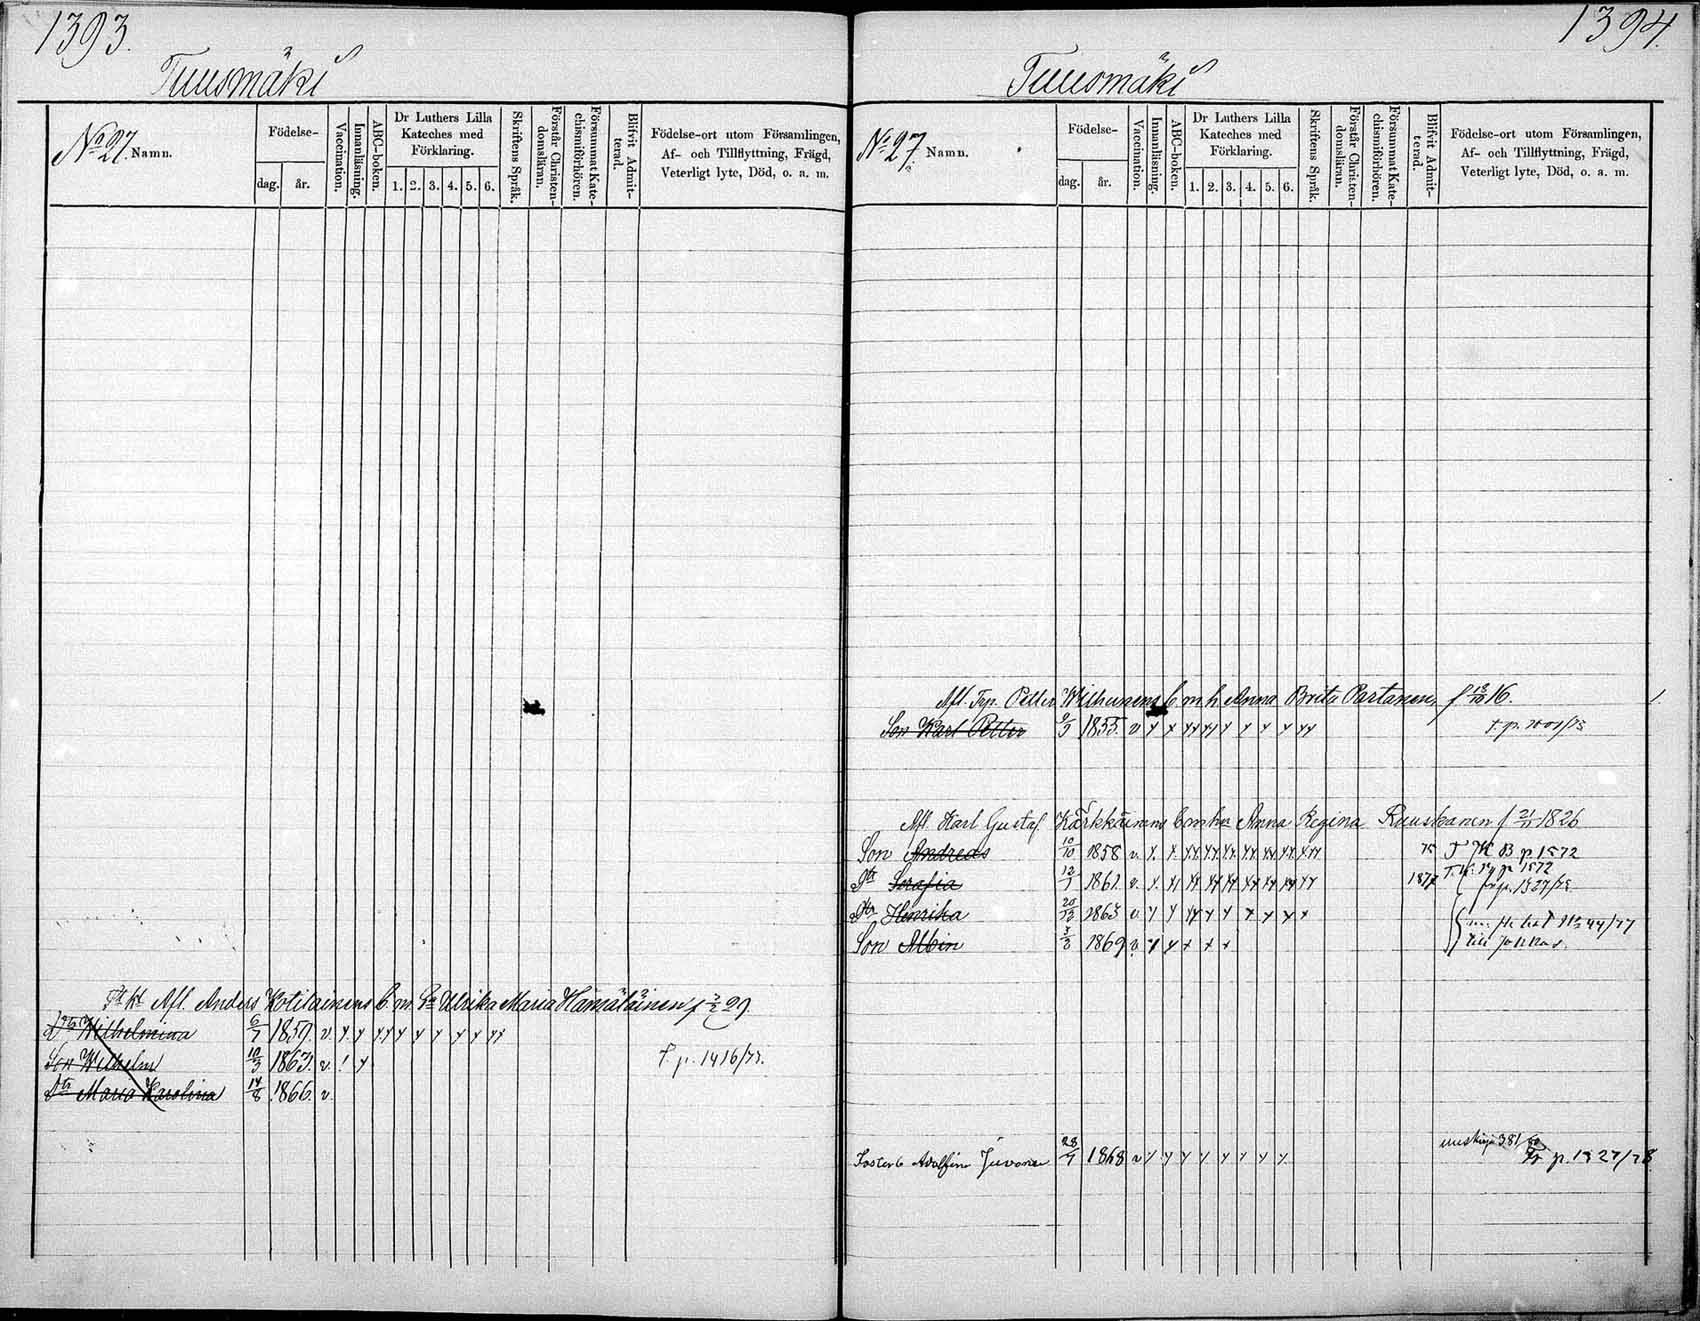 1393.
Tuusmäki
No 27. Namn.
Födelse-
dag. år.
Vaccination.
Innanläsning.
ABC-boken.
Dr Luthers Lilla
Kateches med
Förklaring.
1. 2. 3. 4. 5. 6.
Skriftens Språk.
Förstår Christen-
domsläran.
Försummat Kate-
chismiförhören.
Blifvit Admit-
terad.
Födelse-ort utom Församlingen,
Af- och Tillflyttning, Frägd,
Veterligt lyte, Död, o. a. m.
Afl. Anders Kotilainens Ulrika Maria Hämäläinen
Wilhelmina 6/7 1859. v.
Son Wilhelm 10/3 1863. v. f. p. 1416/77.
Dtr Maria Karolina 14/8 1866. v
1394.
Tuusmäki
No 27. Namn.
Födelse-
dag. år.
Vaccination.
Innanläsning.
ABC-boken.
Dr Luthers Lilla
Kateches med
Förklaring.
1. 2. 3. 4. 5. 6.
Skriftens Språk.
Förstår Christen-
domsläran.
Försummat Kate-
chismiförhören.
Blifvit Admit-
terad.
Födelse-ort utom Församlingen,
Af- och Tillflyttning, Frägd,
Veterligt lyte, Död, o. a. m.
Afl. Petter Wilhunens Anna Brita Partanen, f 16.
Son Karl Petter 1855. v
Afl. Karl Gustaf Kärkkäinens Anna Regina Ruuskanen f 1826
Son Andreas 10/10 1858 v. 75 p. 1572
Dtr Serafia 12/1 1861. v. 1877 p 1572
p. 1327/78
Dtr Henrika 20/12 1863 v 44/77
Son Albin 3/3 1869 v. till Jokkas.
381
Adolfina Juvonen 28/7 1868 v p. 1327/78